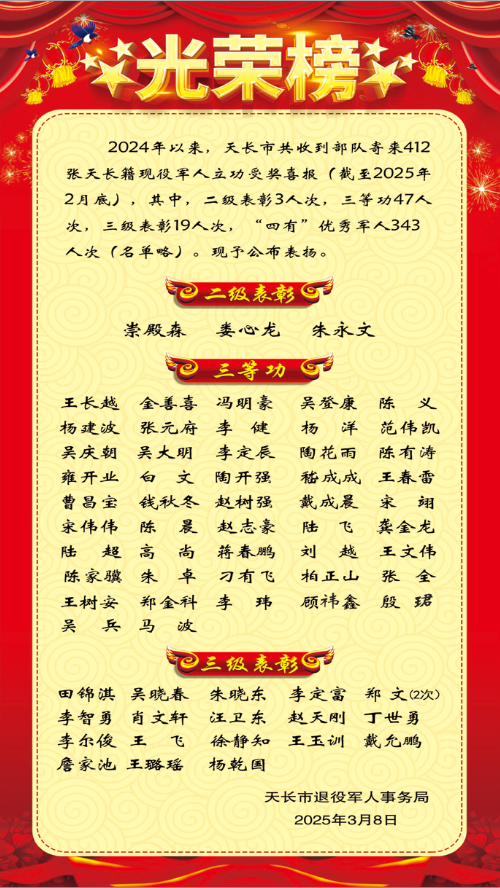 光荣榜
2024年以来，天长市共收到部队寄来412
张天长籍现役军人立功受奖喜报（截至2025年
2月底），其中，二级表彰3人次，三等功47人
次，三级表彰19人次，“四有”优秀军人343
人次（名单略）。现予公布表扬。
二级表彰
崇殿森 娄心龙 朱永文
三等功
王长越 金善喜 冯明豪 吴登康 陈 义
杨建波 张元府 李 健 杨 洋 范伟凯
吴庆朝 吴大明 李定辰 陶花雨 陈有涛
雍开业 白 文 陶开强 嵇成成 王春雷
曹昌宝 钱秋冬 赵树强 戴成晨 宋 翊
宋伟伟 陈 晨 赵志豪 陆 飞 龚金龙
陆 超 高 尚 蒋春鹏 刘 越 王文伟
陈家骥 朱 卓 刁有飞 柏正山 张 全
王树安 郑金科 李 玮 顾祎鑫 殷 珺
吴 兵 马 波
三级表彰
田锦淇 吴晓春 朱晓东 李定富 郑 文(2次)
李智勇 肖文轩 汪卫东 赵天刚 丁世勇
李尔俊 王 飞 徐静知 王玉训 戴允鹏
詹家池 王璐瑶 杨乾国
天长市退役军人事务局
2025年3月8日